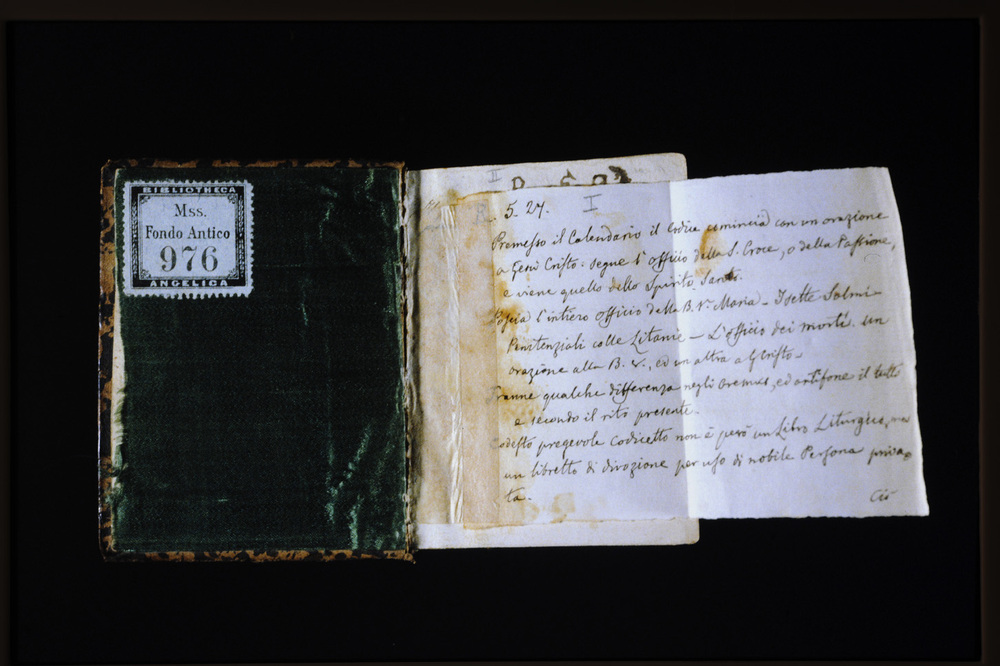 BIBLIOTHECA
Mss.
Fondo Antico
976
ANGELICA
II
I
R. 5. 27.
Premesso il Calendario il Codice comincia con un orazione
a Gesù Cristo: segue l'officio della S. Croce, o della Passione,
e viene quello dello Spirito Santo.
Poscia l'intiero officio della B. V. Maria - I sette Salmi
Penitenziali colle Litanie - L'officio dei morti. un
orazione alla B. V., ed un altra a G. Cristo -
Tranne qualche differenza negli oremus, ed antifone il tutto
e secondo il rito presente.
Codesto pregevole codicetto non è però un Libro Liturgico, ma
un libretto di divozione per uso di nobile Persona priva
ta.
Ciò